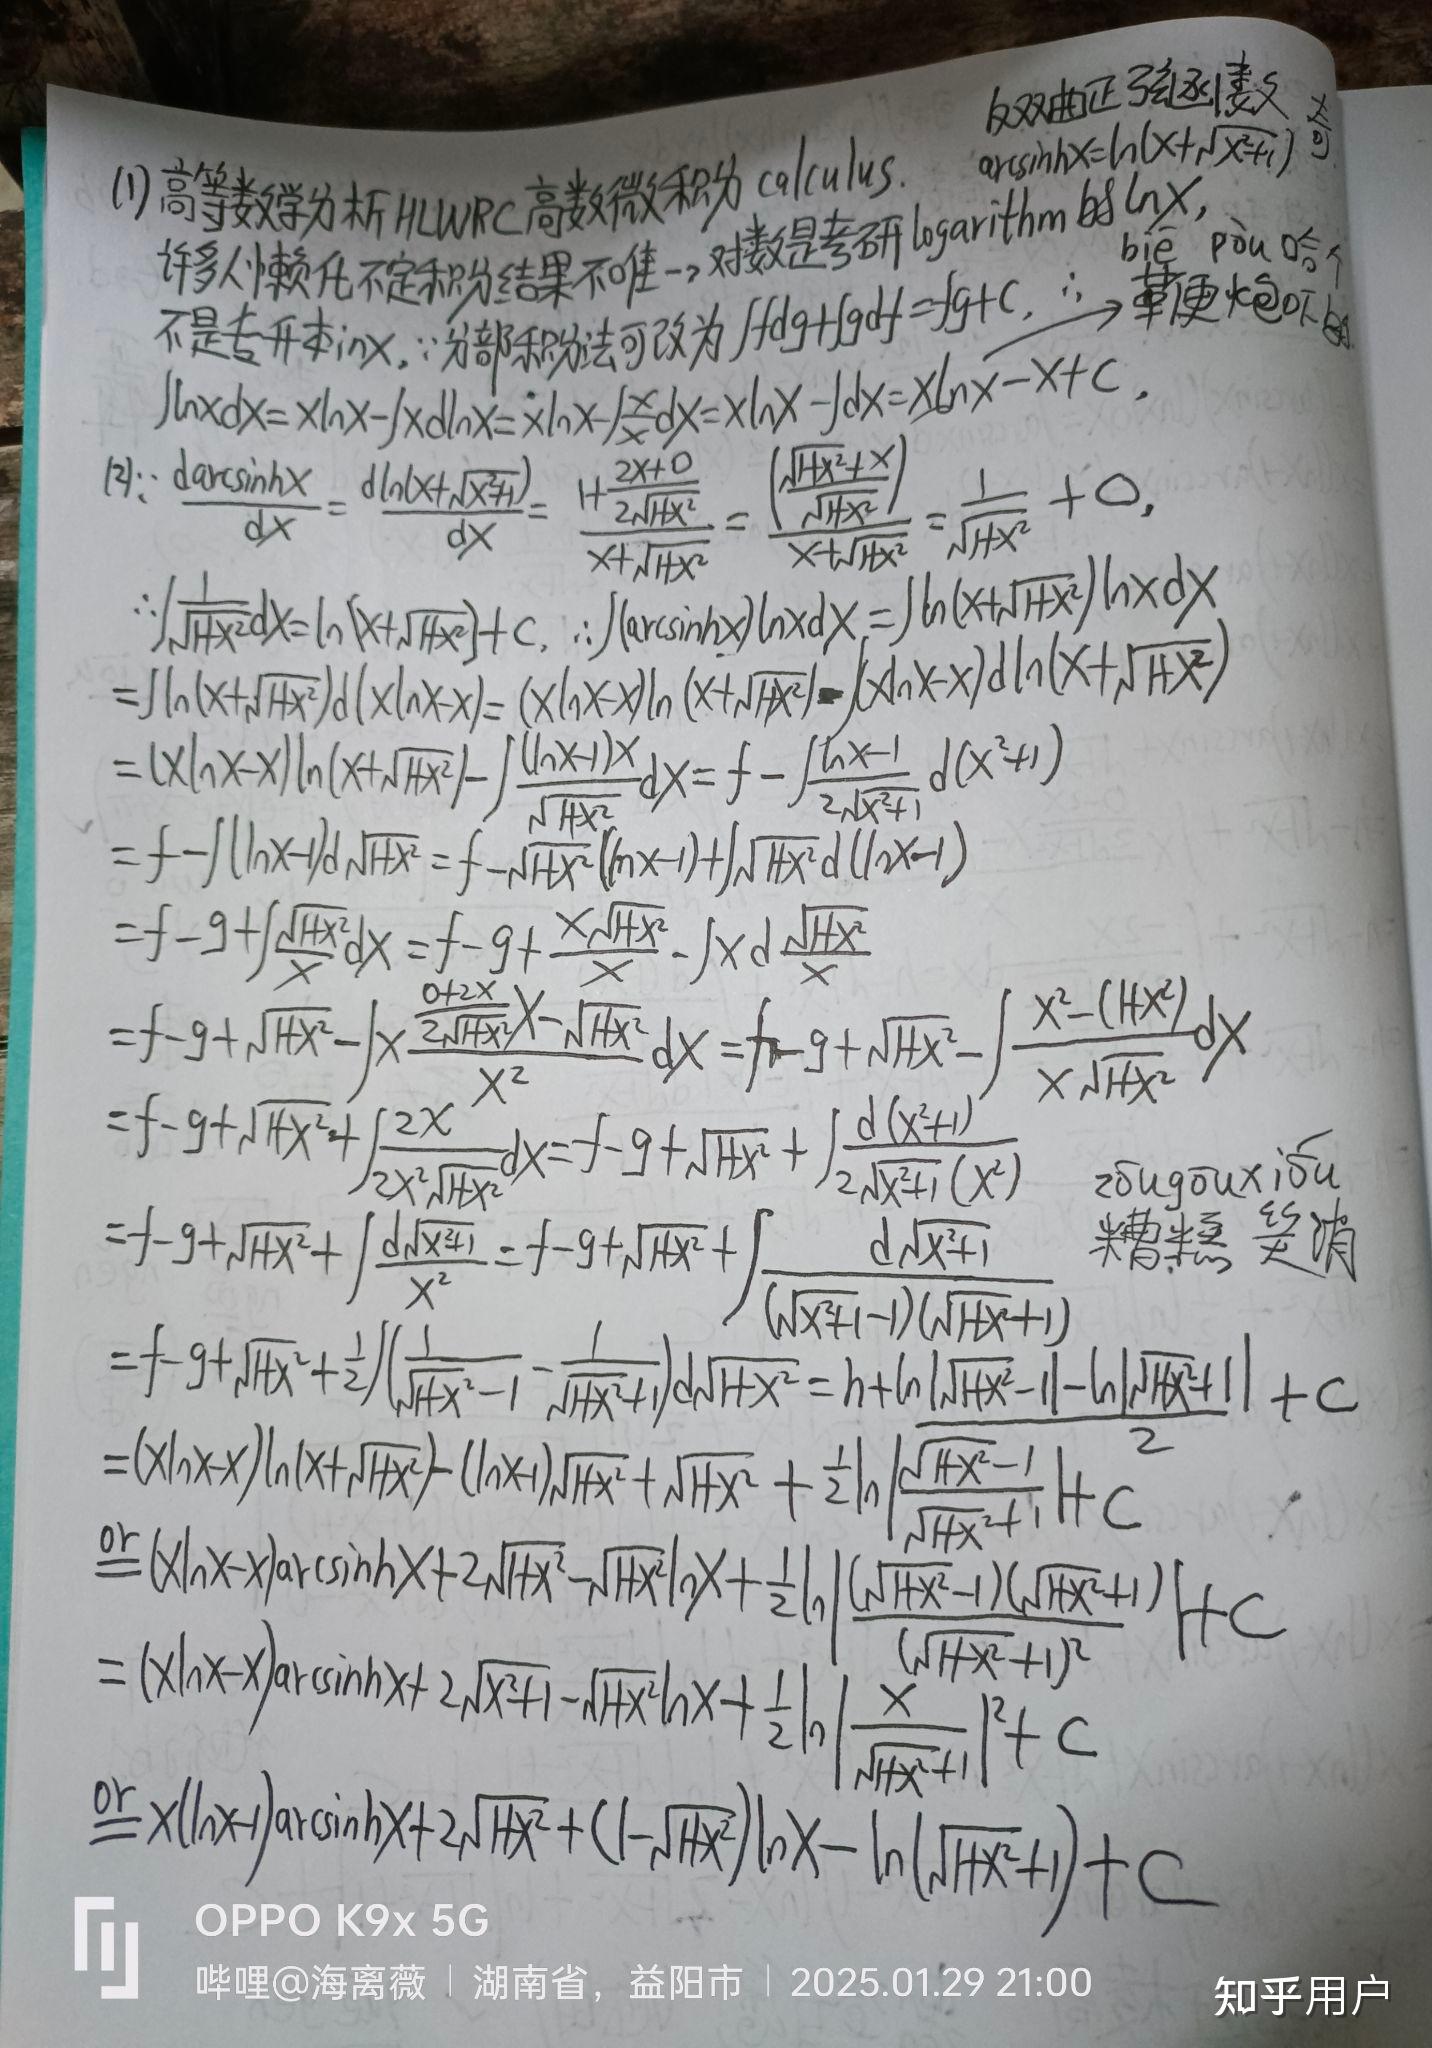 反双曲正弦函数
arcsinhx=ln(x+√(x²+1))
(1)高等数学分析HLWRC高数微积分calculus.
许多人懒化不定积分结果不唯一,对数是考研logarithm的lnx,
biē pòu
不是专升本inx,∵分部积分法可改为∫fdg+∫gdf=fg+C,∴
∫lnxdx=xlnx-∫xdlnx=xlnx-∫(x/x)dx=xlnx-∫dx=xlnx-x+C,
(2)∵darcsinhx/dx=dln(x+√(x²+1))/dx=(1+(2x+0)/(2√(1+x²)))/(x+√(1+x²))=((√(1+x²)+x)/√(1+x²))/(x+√(1+x²))=1/√(1+x²)+0,
∴∫1/√(1+x²)dx=ln(x+√(1+x²))+C,∴∫(arcsinhx)lnxdx=∫ln(x+√(1+x²))lnxdx
=∫ln(x+√(1+x²))d(xlnx-x)=(xlnx-x)ln(x+√(1+x²))-∫(xlnx-x)dln(x+√(1+x²))
=(xlnx-x)ln(x+√(1+x²))-∫((lnx-1)x/√(1+x²))dx=f-∫((lnx-1)/(2√(x²+1)))d(x²+1)
=f-∫(lnx-1)d√(1+x²)=f-√(1+x²)(lnx-1)+∫√(1+x²)d(lnx-1)
=f-g+∫(√(1+x²)/x)dx=f-g+x√(1+x²)/x-∫xd(√(1+x²)/x)
=f-g+√(1+x²)-∫x(((0+2x)/(2√(1+x²)))x-√(1+x²))/x² dx=f-g+√(1+x²)-∫(x²-(1+x²))/(x√(1+x²))dx
=f-g+√(1+x²)+∫2x/(2x²√(1+x²))dx=f-g+√(1+x²)+∫d(x²+1)/(2√(x²+1)(x²))
zōugōuxiōu
糟糕 笑消
=f-g+√(1+x²)+∫d√(x²+1)/x²=f-g+√(1+x²)+∫d√(x²+1)/((√(x²+1)-1)(√(1+x²)+1))
=f-g+√(1+x²)+½∫(1/(√(1+x²)-1)-1/(√(1+x²)+1))d√(1+x²)=h+(ln|√(1+x²)-1|-ln|√(1+x²)+1|)/2+C
=(xlnx-x)ln(x+√(1+x²))-(lnx-1)√(1+x²)+√(1+x²)+½ln|(√(1+x²)-1)/(√(1+x²)+1)|+C
or=(xlnx-x)arcsinhx+2√(1+x²)-√(1+x²)lnx+½ln|(√(1+x²)-1)(√(1+x²)+1)/(√(1+x²)+1)²|+C
=(xlnx-x)arcsinhx+2√(x²+1)-√(1+x²)lnx+½ln|x/(√(1+x²)+1)|²+C
or=x(lnx-1)arcsinhx+2√(1+x²)+(1-√(1+x²))lnx-ln(√(1+x²)+1)+C
OPPO K9x 5G
哔哩@海离薇 | 湖南省，益阳市 | 2025.01.29 21:00
知乎用户